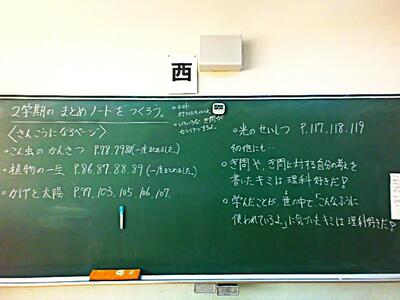 西
2学期の まとめノートを つくろう。
<さんこうになるページ>
◦こん虫のかんさつ P.78.79
(一度まとめました。)
◦植物の一生 P.86.87.88.89 (一度まとめました。)
◦かげと太陽 P.97.103.105.106.107.
◦テスト
◦いろいろな
◦光のせいしつ P.117.118.119
初他にも…
◦ぎ問や、ぎ問に対する自分の考えを
書いたキミは理科好きだ!
◦学んだことが、世の中で「こんなふうに
使われているよ。」に気づいたキミは理科好きだ!